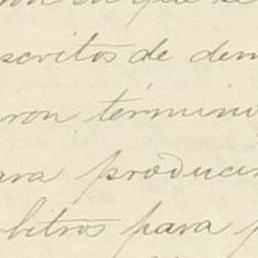 en que se
scritos de dem
ron términ
ara producir
rbitros para p